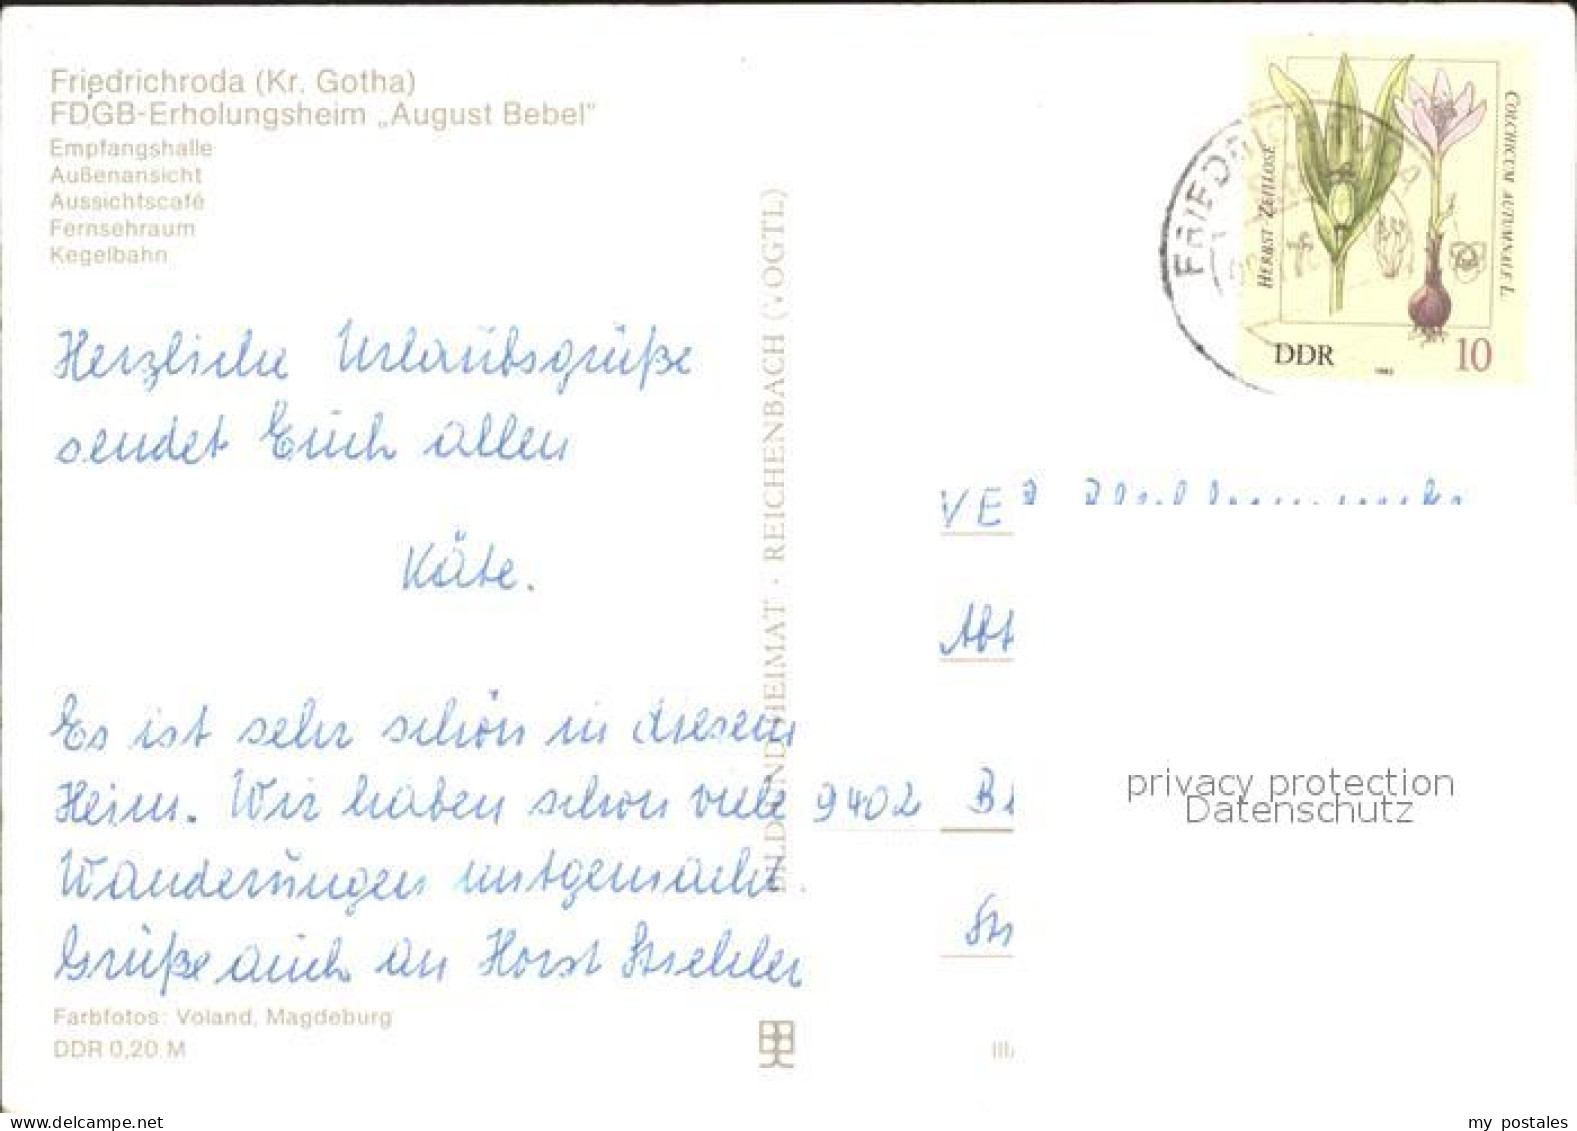 Friedrichroda (Kr. Gotha)
FDGB-Erholungsheim „August Bebel"
Empfangshalle
Außenansicht
Aussichtscafé
Fernsehraum
Kegelbahn
Herzliche Urlaubsgrüße
sendet Euch allen
Käte.
Es ist sehr schön in diesem
Heim. Wir haben schon viele
Wanderungen mitgemacht.
Grüße auch an Horst
Farbfotos: Voland, Magdeburg
DDR 0,20 M
BILD UND HEIMAT · REICHENBACH (VOGTL)
HERBST-ZEITLOSE
COLCHICUM AUTUMNALE L.
DDR
1982
10
VEB
Abt
9402
privacy protection
Datenschutz
www.delcampe.net
my postales